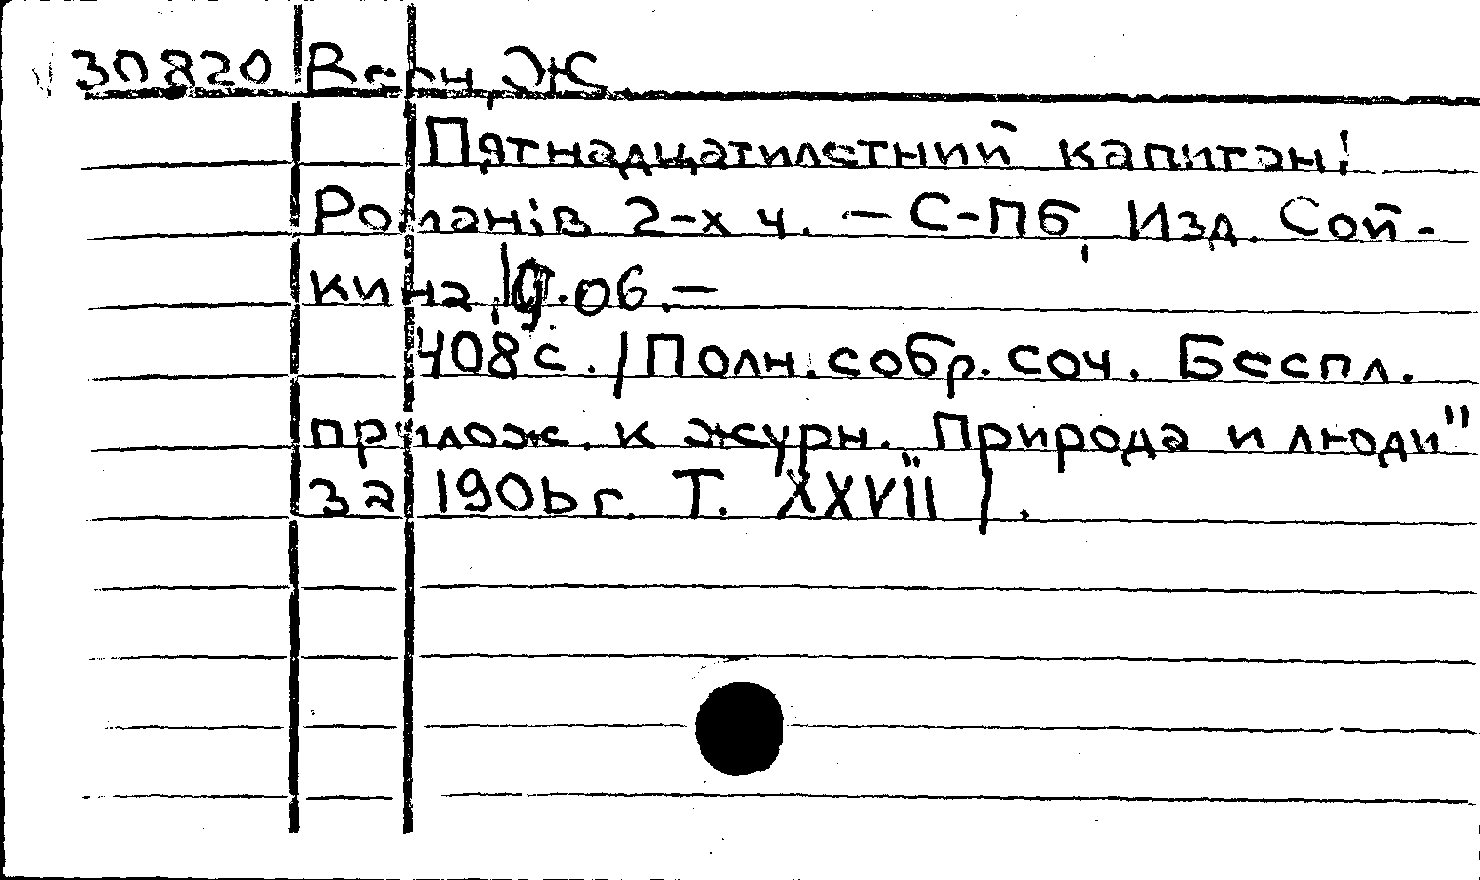 30820 Верн, Ж.
Пятнадцатилетний капитан:
Роман в 2-х ч. — С-Пб, Изд. Сой-
кина, 1906. —
408 с. /Полн. собр. соч. Беспл.
прилож. к журн. Природа и люди"
за 1906 г. Т. XXVII/.